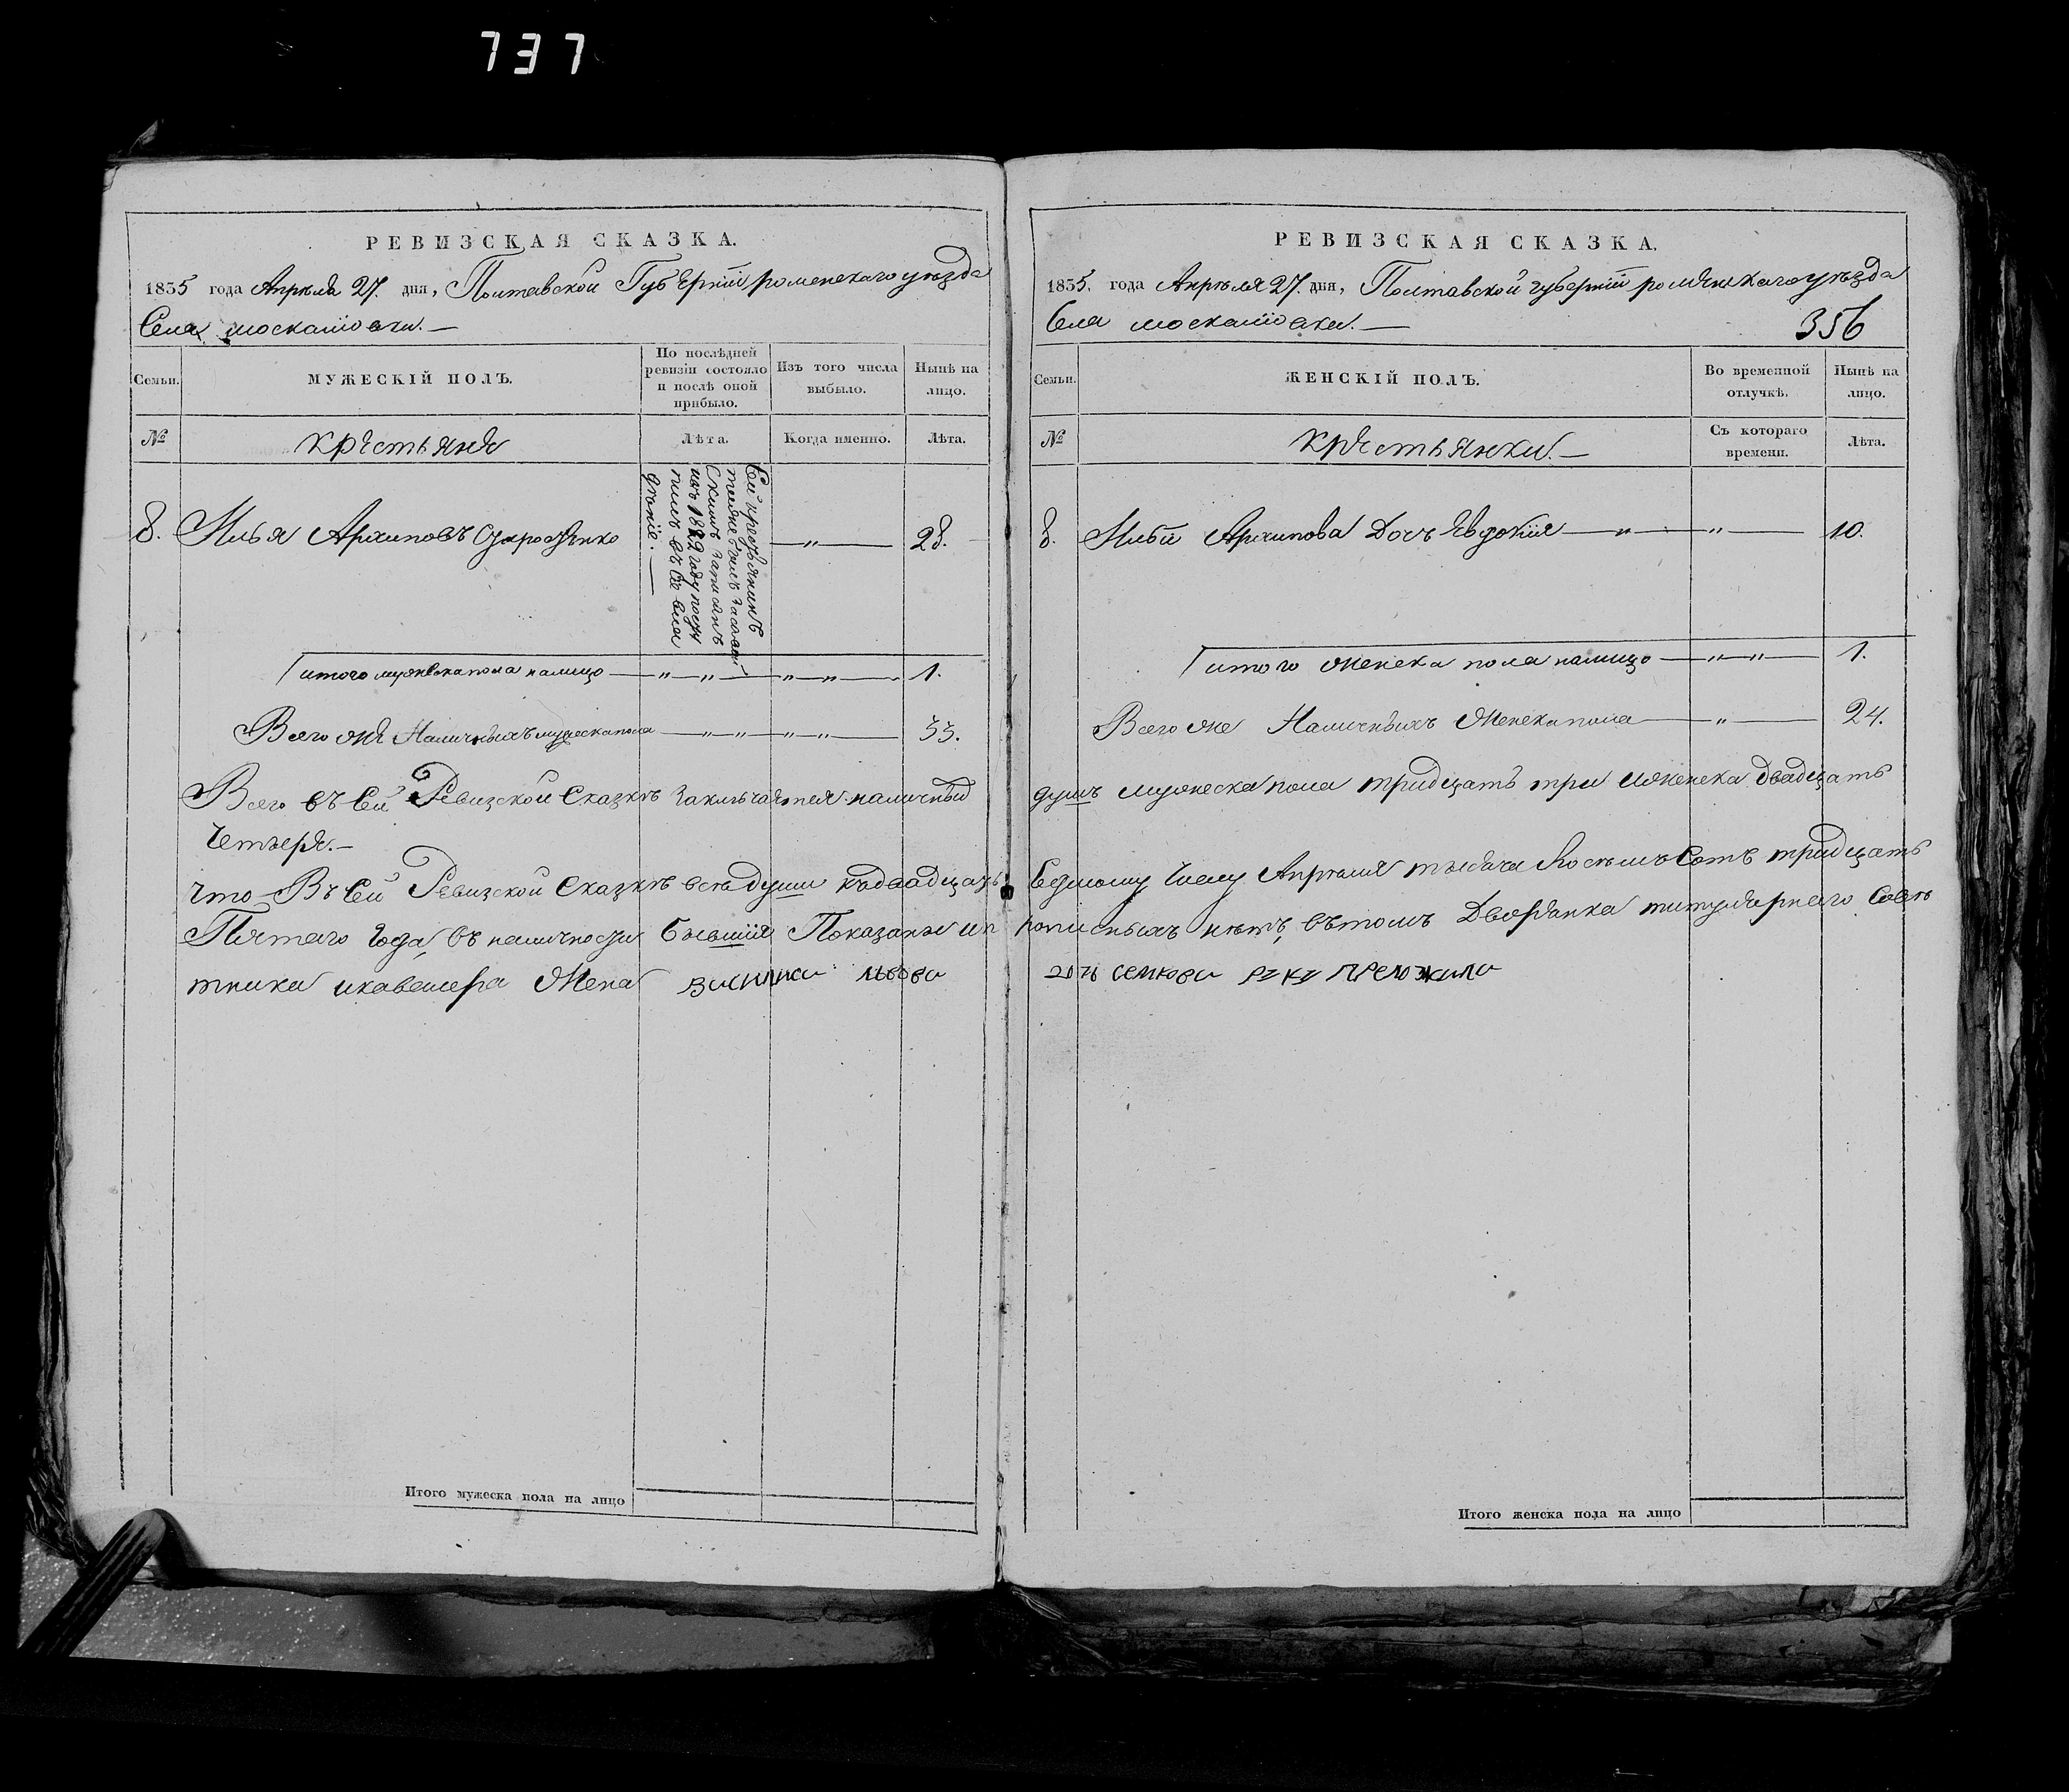 737
РЕВИЗСКАЯ СКАЗКА.
1835 года Апреля 27. дня, Полтавской Губернии роменскаго уезда
Села москалювки.—
Семьи.
МУЖЕСКІЙ ПОЛЪ.
По послѣдней ревизіи состояло и послѣ оной прибыло.
Изъ того числа выбыло.
Нынѣ на лицо.
№
крестьяне
Лѣта.
Когда именно.
Лѣта.
8. Илья Архиповъ
Сей крестьянинъ
записанъ
1822 году посту
пилъ въ се
—"— 28.
итого мужеска пола налицо —"—"— —"—"— 1.
Всего же Наличныхъ мужеска пола —"—"— —"—"— 33.
Всего въ Сей Ревизской Сказкѣ заключается наличных
четыре.—
что Въ Сей Ревизской Сказкѣ всѣ души къ двадцать
Пятаго года, въ наличности бывшия Показаны и п
тника икавалера Жена василиса львова
Итого мужеска пола на лицо
РЕВИЗСКАЯ СКАЗКА.
1835. года Апрѣля 27. дня, Полтавской губернии роменскаго уѣзда
Села москалювки.—
356
Семьи.
ЖЕНСКІЙ ПОЛЪ.
Во временной отлучкѣ.
Нынѣ на лицо.
№
крестьянки.—
Съ котораго времени.
Лѣта.
8. Ильи Архипова Дочь Явдокия —"— —"— 10.
итого женска пола налицо —"—"— 1.
Всего же Наличныхъ Женска пола —"— 24.
душъ мужеска пола тридцать три иженска двадцать
Седмому Числу Апреля тысяча Восемъ Сотъ тридцать
рописныхъ нѣтъ, вътомъ Дворянка титулярнаго Совѣ
дочь семкова руку преложила
Итого женска пола на лицо